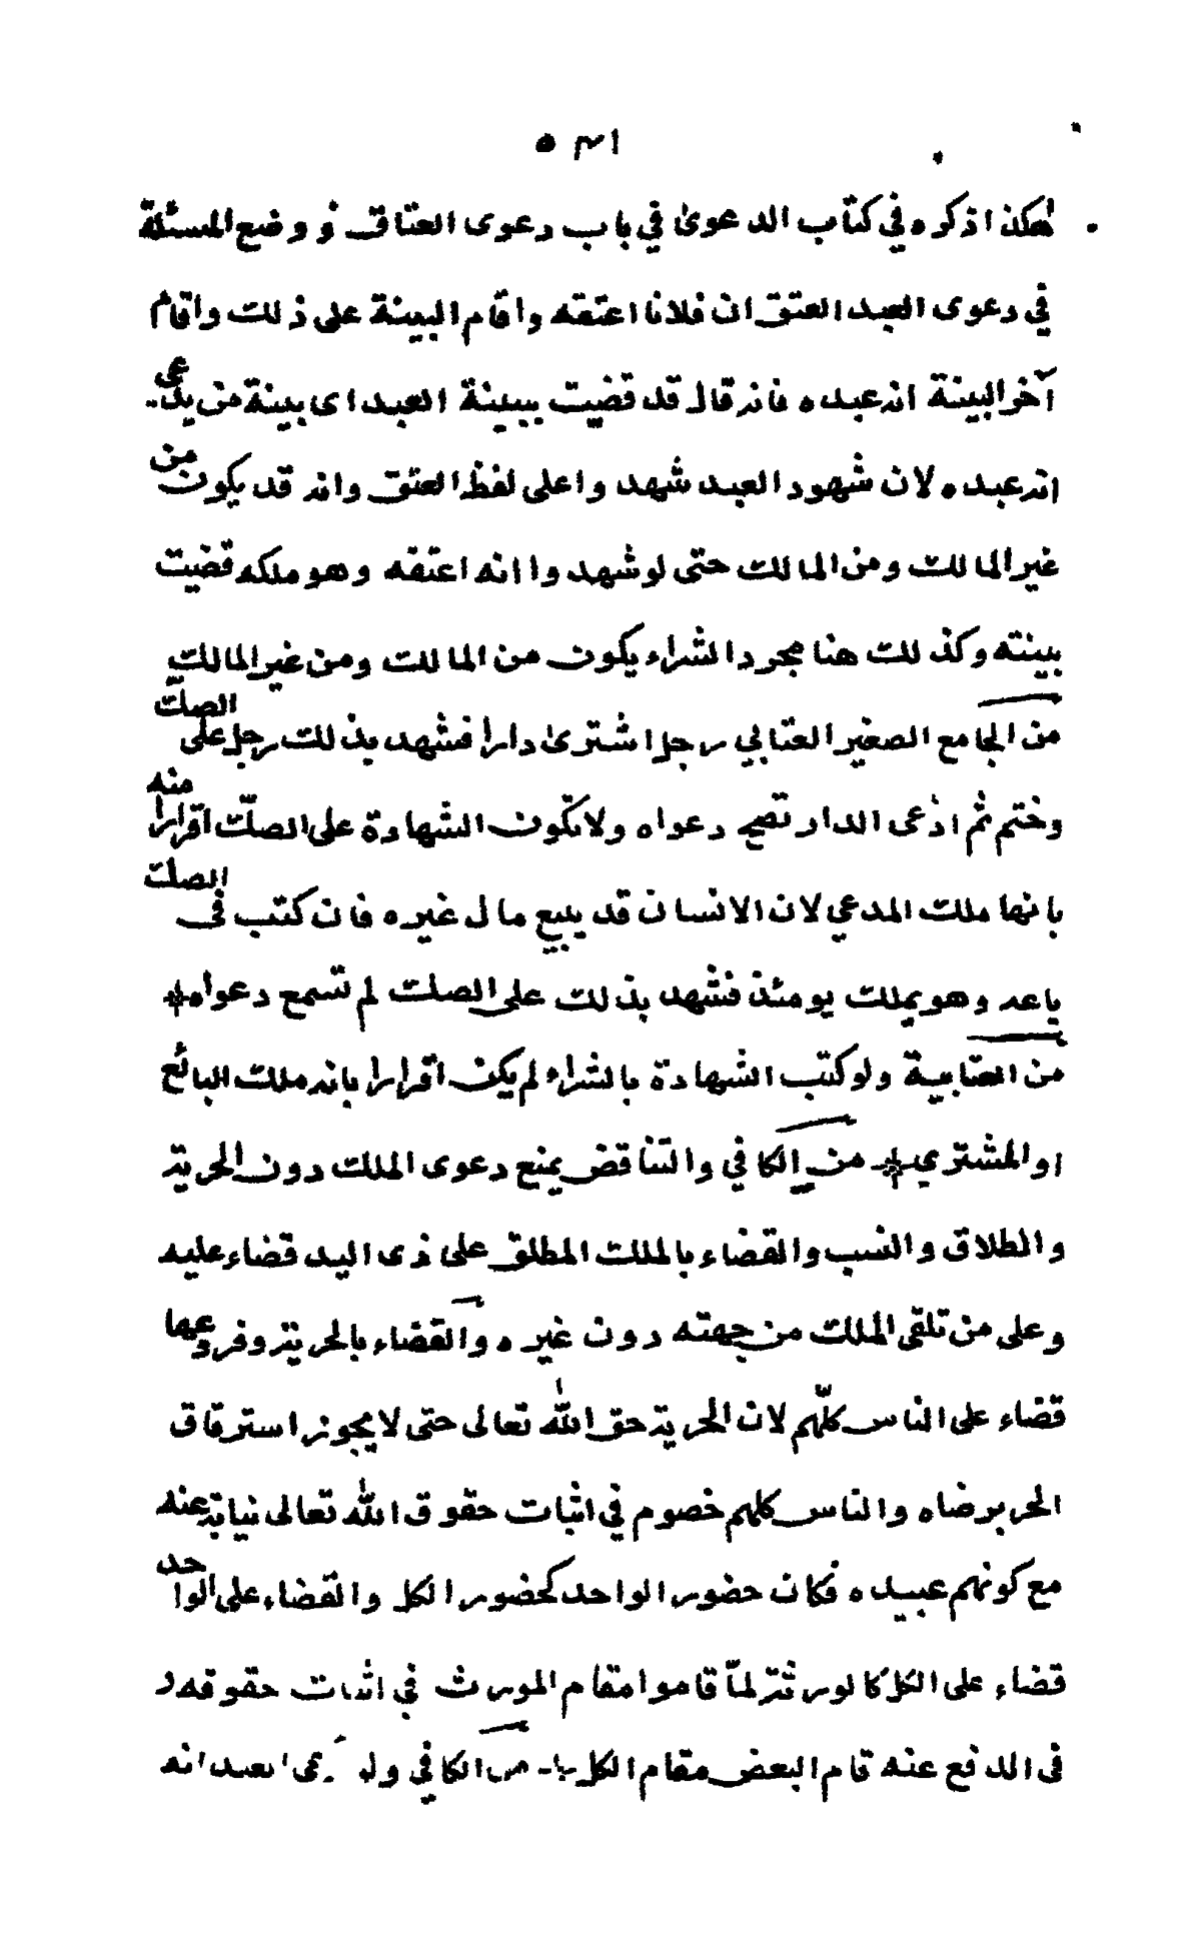 ٥٣١
هكذا ذكره في كتاب الدعوى في باب دعوى العتاق و وضع المسئلة
في دعوى العبد العتق ان فلانا اعتقه واقام البينة على ذلك واقام
آخر البينة انه عبده فانه قال قد قضيت ببينة العبد اى بينة من يدعى
انه عبده لان شهود العبد شهدوا على لفظ العتق وانه قد يكون من
غير المالك ومن المالك حتى لو شهدوا انه اعتقه وهو ملكه قضيت
ببينته وكذلك هنا مجرد الشراء يكون من المالك ومن غير المالك
من الجامع الصغير العتابي رجل اشترى دارا فشهد بذلك رجل على الصك
وختم ثم ادعى الدار تصح دعواه ولا تكون الشهادة على الصك اقرارا منه
بانها ملك المدعي لان الانسان قد يبيع مال غيره فان كتب فى الصك
باعه وهو يملك يومئذ فشهد بذلك على الصك لم تسمع دعواه
من العتابية ولو كتب الشهادة بالشراء لم يكن اقرارا بانه ملك البائع
او المشتري من الكافي والتناقض يمنع دعوى الملك دون الحرية
والطلاق والنسب والقضاء بالملك المطلق على ذى اليد قضاء عليه
وعلى من تلقى الملك من جهته دون غيره والقضاء بالحرية وفروعها
قضاء على الناس كلّهم لان الحرية حق اللّٰه تعالى حتى لا يجوز استرقاق
الحر برضاه والناس كلهم خصوم في اثبات حقوق اللّٰه تعالى نيابة عنه
مع كونهم عبيده فكان حضور الواحد كحضور الكل والقضاء على الواحد
قضاء على الكل كالورثة لمّا قاموا مقام المورث في اثبات حقوقه و
فى الدفع عنه قام البعض مقام الكل من الكافي ولو ادعى العبد انه